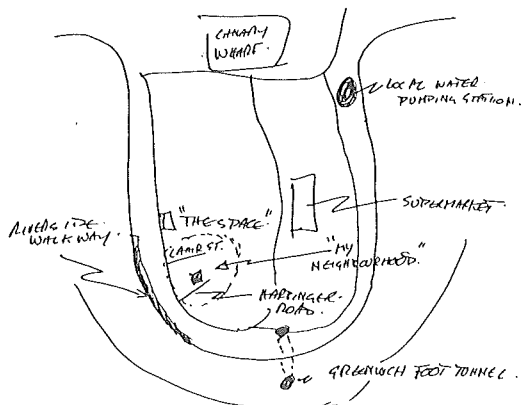 CANARY
WHARF.
LOCAL WATER
PUMPING STATION.
"THE SPACE"
SUPERMARKET.
RIVERSIDE
WALKWAY.
CLAIRE ST.
"MY
NEIGHBOURHOOD."
HARBINGER
ROAD.
GREENWICH FOOT TUNNEL.